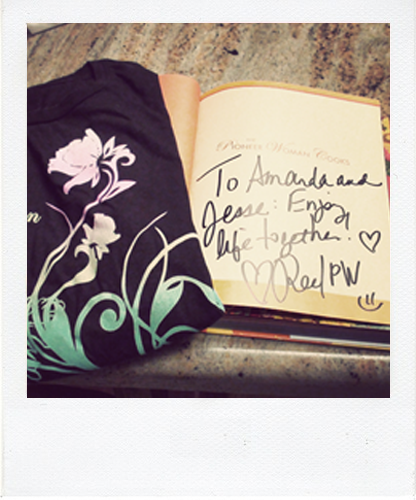 THE
PIONEER WOMAN COOKS
To Amanda and
Jesse: Enjoy
life together. ♡
♡ Ree/PW
n